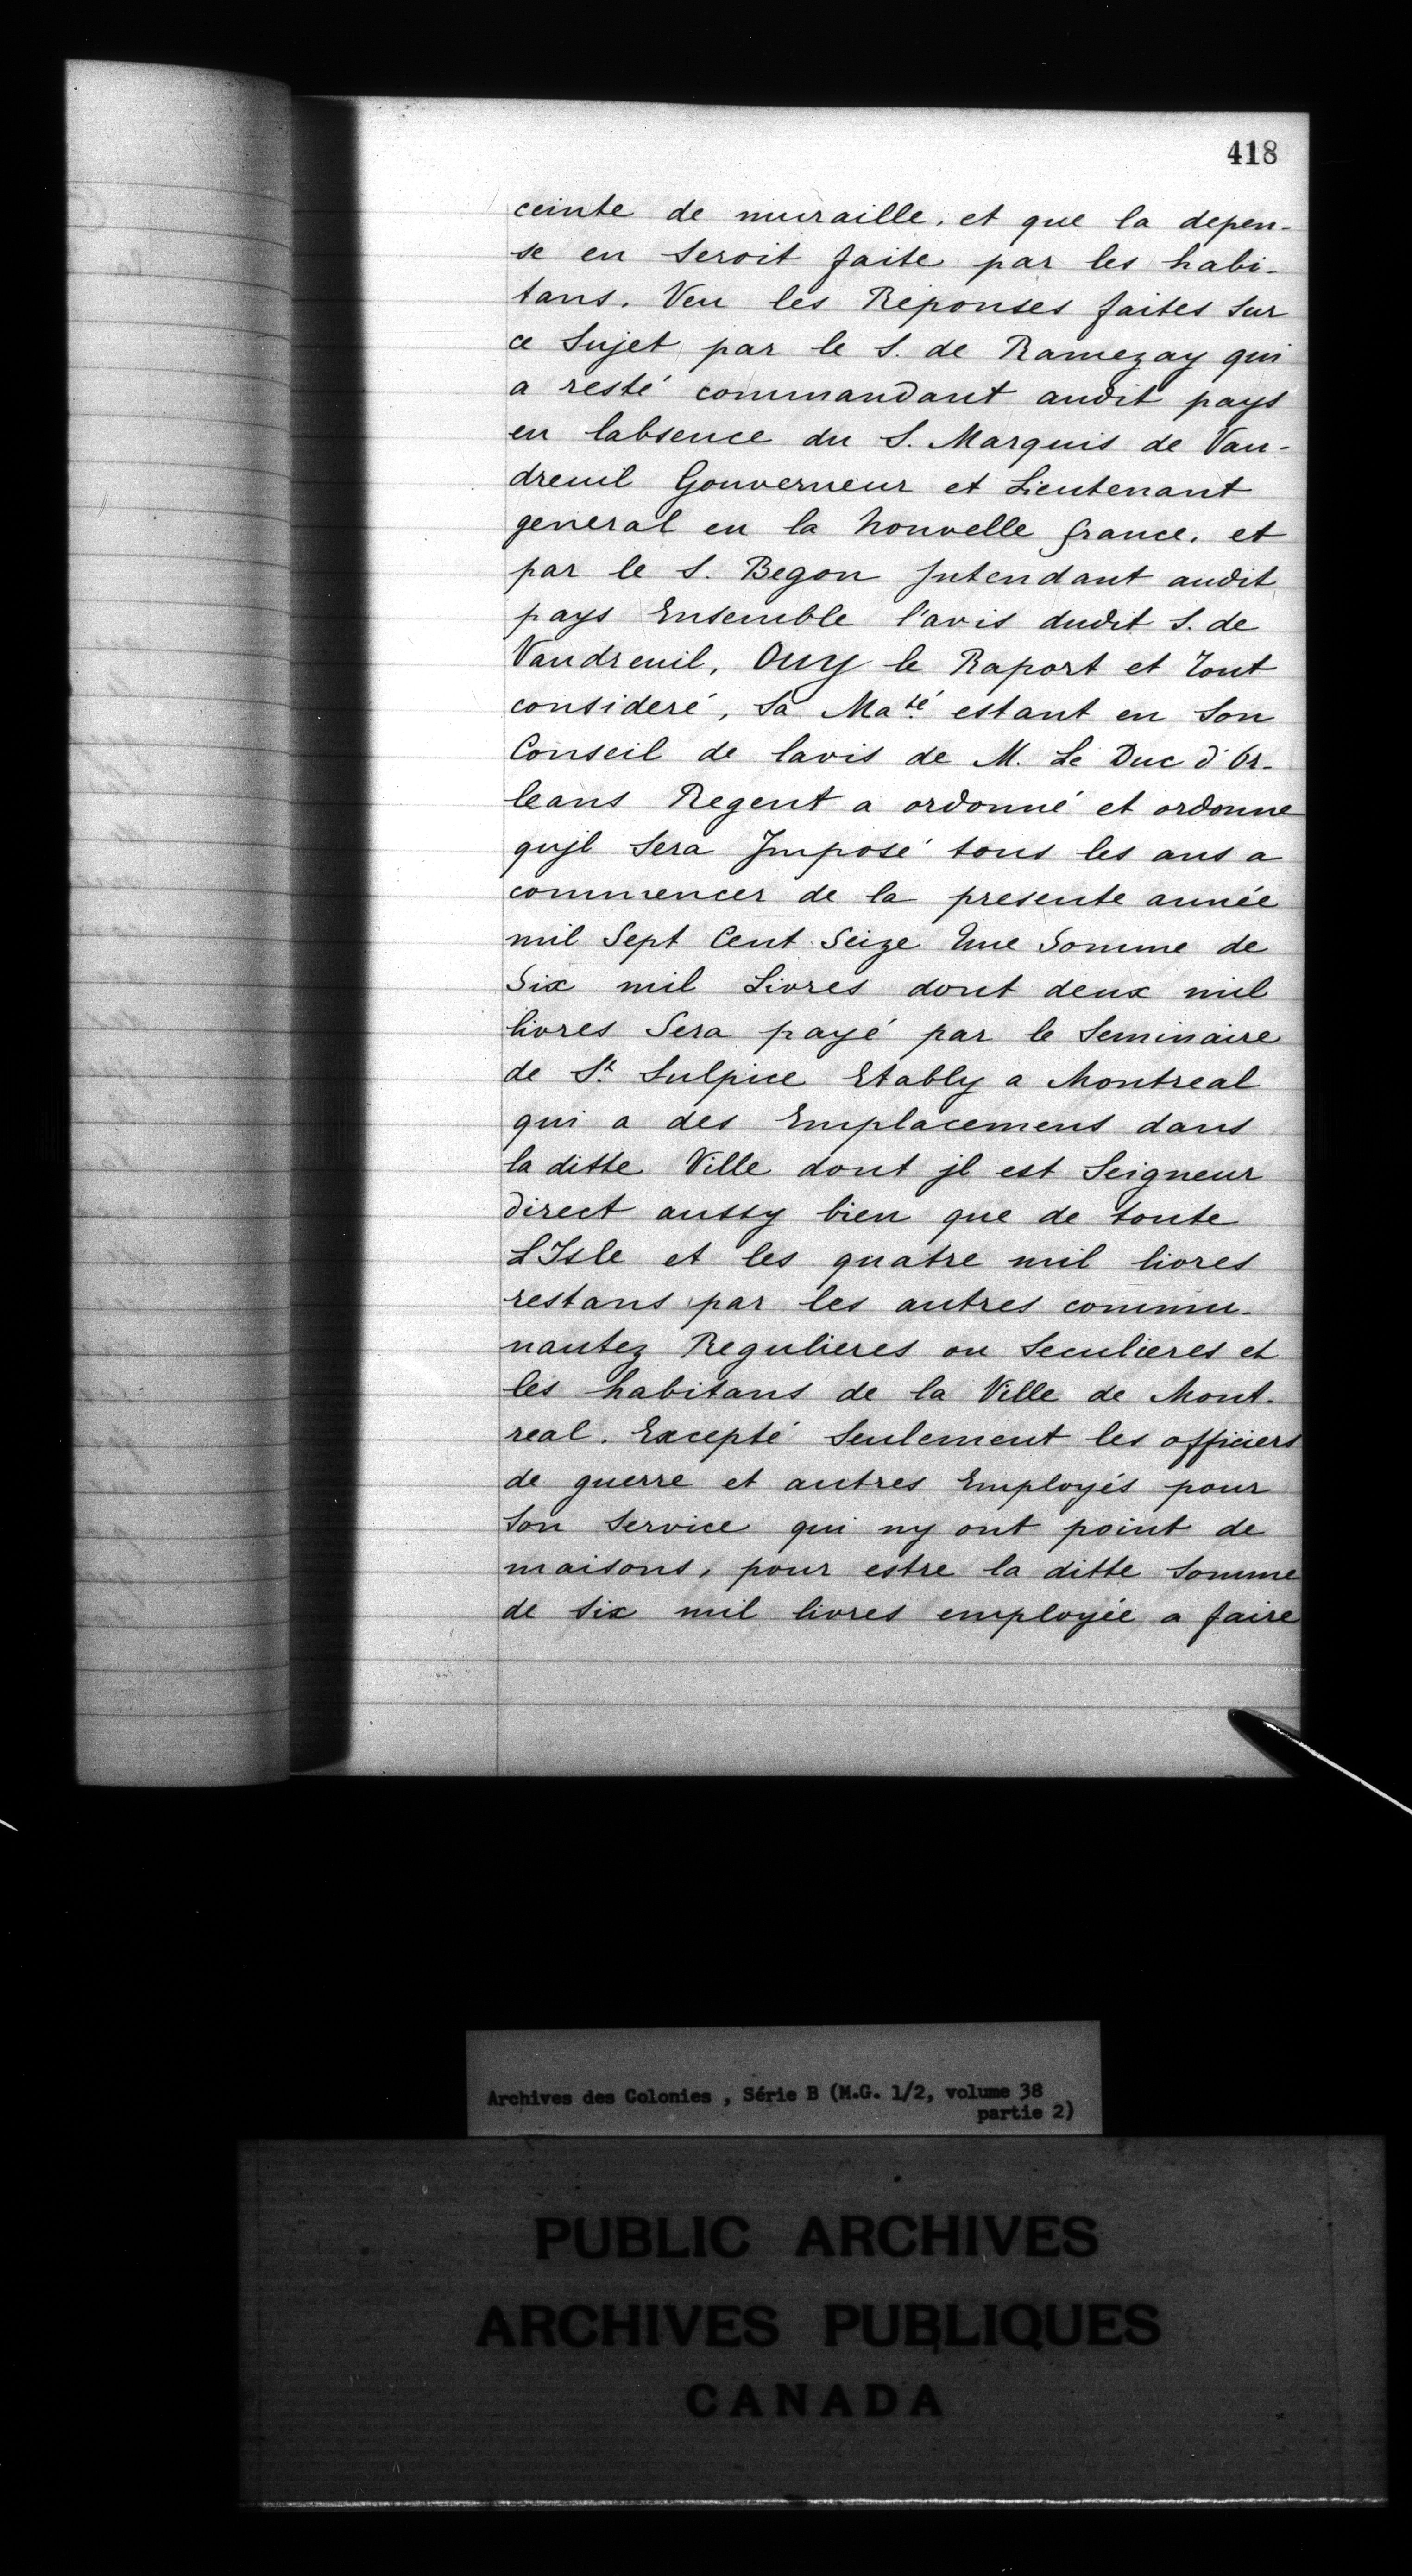 418
ceinte de muraille, et que la depen-
se en seroit faite par les habi-
tans. Veu les Réponses faites sur
ce sujet par le S. de Ramezay qui
a resté commandant audit pays
en labsence du S. Marquis de Vau-
dreuil Gouverneur et Lieutenant
general en la nouvelle france. et
par le S. Begon Intendant audit
pays Ensemble l'avis dudit S. de
Vaudreuil, Ouy le Raport et Tout
consideré, Sa Ma.té estant en Son
Conseil de lavis de M. Le Duc d'Or-
leans Regent a ordonné et ordonne
qujl sera Imposé tous les ans a
commencer de la presente année
mil Sept Cent Seize Une Somme de
Six mil Livres dont deux mil
livres Sera payé par le Seminaire
de St. Sulpice Etably a Montreal
qui a des Emplacemens dans
la ditte Ville dont jl est Seigneur
direct aussy bien que de toute
L'Isle et les quatre mil livres
restans par les autres commu-
nautez Regulieres ou Seculieres et
les habitans de la Ville de Mont-
real. Excepté Seulement les officiers
de guerre et autres Employés pour
Son Service qui ny ont point de
maisons, pour estre la ditte Somme
de Six mil livres employée a faire
Archives des Colonies , Série B (M.G. 1/2, volume 38
partie 2)
PUBLIC ARCHIVES
ARCHIVES PUBLIQUES
CANADA